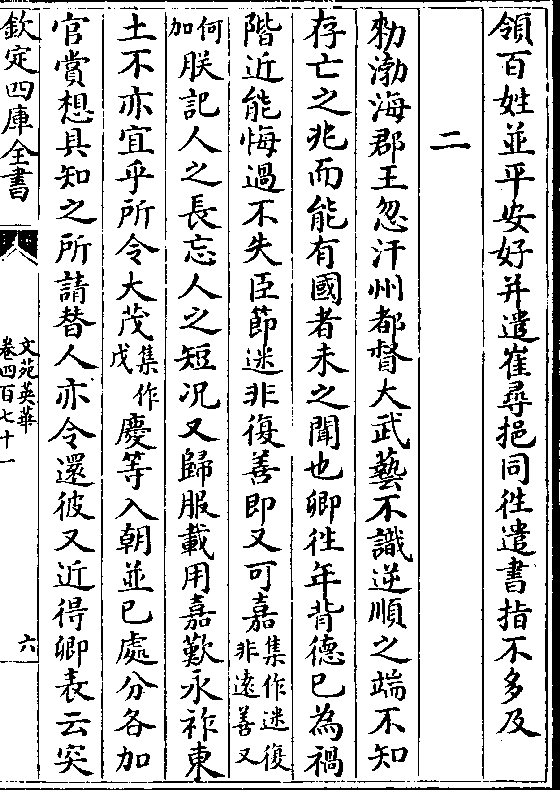 領百姓並平安好并遣崔尋挹同徃遣書指不多及
二
勑渤海郡王忽汗州都督大武藝不識逆順之端不知
存亡之兆而能有國者未之聞也卿徃年背德已為禍
階近能悔過不失臣節迷非復善即又可嘉集作迷復非遠善又
何加朕記人之長忘人之短况又歸服載用嘉歎永祚東
土不亦宜乎所令大茂集作戊慶等入朝並已處分各加
官賞想具知之所請替人亦令還彼又近得卿表云突
欽定四庫全書
文苑英華
卷四百七十一
六